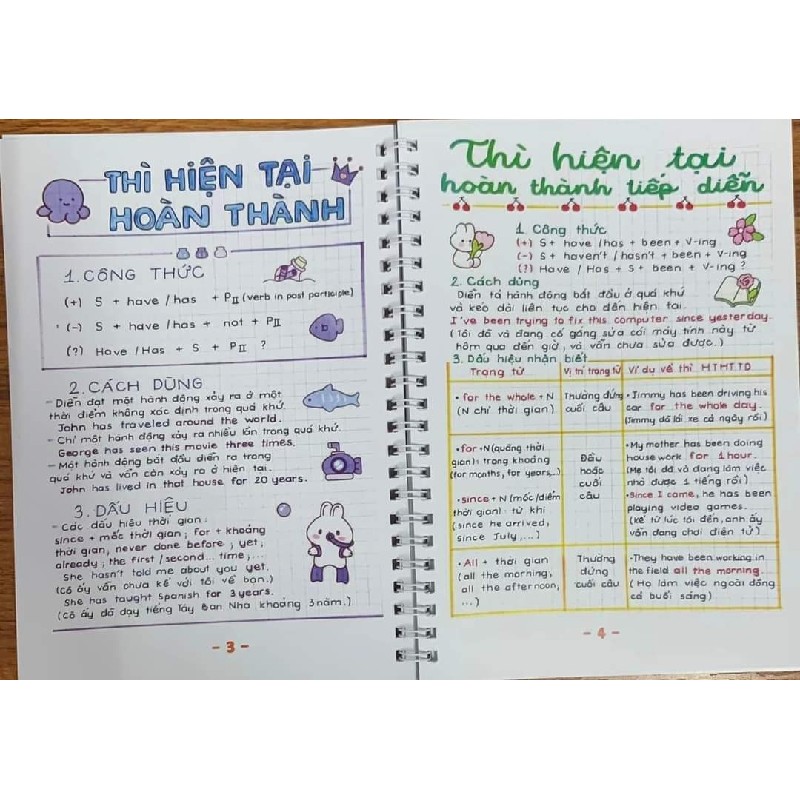 THÌ HIỆN TẠI
HOÀN THÀNH
1. CÔNG THỨC
(+) S + have / has + PII (verb in past participle)
(-) S + have / has + not + PII
(?) Have / Has + S + PII ?
2. CÁCH DÙNG
- Diễn đạt một hành động xảy ra ở một
thời điểm không xác định trong quá khứ.
John has traveled around the world.
- Chỉ một hành động xảy ra nhiều lần trong quá khứ.
George has seen this movie three times.
- Một hành động bắt đầu diễn ra trong
quá khứ và vẫn còn xảy ra ở hiện tại.
John has lived in that house for 20 years.
3. DẤU HIỆU
- Các dấu hiệu thời gian:
since + mốc thời gian; for + khoảng
thời gian, never done before; yet;
already; the first / second... time;...
She hasn't told me about you yet.
(Cô ấy vẫn chưa kể với tôi về bạn.)
She has taught Spanish for 3 years.
(Cô ấy đã dạy tiếng Tây Ban Nha khoảng 3 năm.)
- 3 -
Thì hiện tại
hoàn thành tiếp diễn
1. Công thức
(+) S + have / has + been + V-ing
(-) S + haven't / hasn't + been + V-ing
(?) Have / Has + S + been + V-ing ?
2. Cách dùng
Diễn tả hành động bắt đầu ở quá khứ
và kéo dài liên tục cho đến hiện tại.
I've been trying to fix this computer since yesterday.
(Tôi đã và đang cố gắng sửa cái máy tính này từ
hôm qua đến giờ, và vẫn chưa sửa được.)
3. Dấu hiệu nhận biết
Trạng từ
Vị trí trạng từ
Ví dụ về thì HTHTTD
• for the whole + N
(N chỉ thời gian)
Thường đứng
cuối câu
• Jimmy has been driving his
car for the whole day.
(Jimmy đã lái xe cả ngày rồi)
• for + N (quãng thời
gian): trong khoảng
(for months, for years,...)
• since + N (mốc/điểm
thời gian): từ khi
(since he arrived,
since July,...)
Đầu
hoặc
cuối
câu
• My mother has been doing
housework for 1 hour.
(Mẹ tôi đã và đang làm việc
nhà được 1 tiếng rồi)
• Since I came, he has been
playing video games.
(Kể từ lúc tôi đến, anh ấy
vẫn đang chơi điện tử)
• All + thời gian
(all the morning,
all the afternoon,
...)
Thường
đứng
cuối câu
• They have been working in
the field all the morning.
(Họ làm việc ngoài đồng
cả buổi sáng)
- 4 -